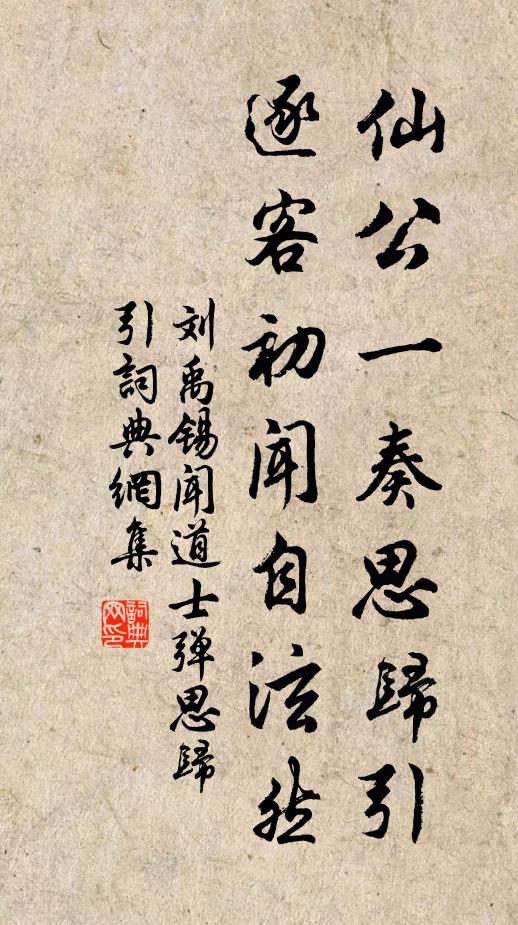 仙公一奏思歸引
逐客初闻自泫然
刘禹锡闻道士弹思歸
引詞典網集
詞典网印